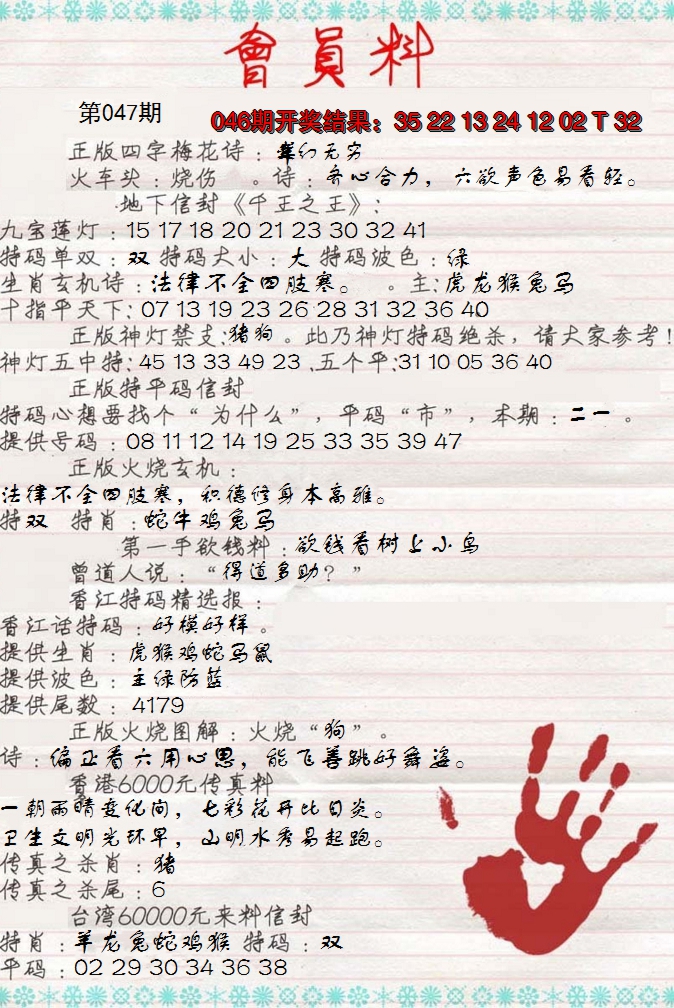 會員料
第047期
046期开奖结果：35 22 13 24 12 02 T 32
正版四字梅花诗：幻无穷
火车头：烧伤 。诗：齐心合力，六欲声色易看轻。
.地下信封《千王之王》：
九宝莲灯：15 17 18 20 21 23 30 32 41
特码单双：双 特码大小：大 特码波色：绿
生肖玄机诗：法律不全四肢寒。 。主：虎龙猴兔马
十指平天下：07 13 19 23 26 28 31 32 36 40
正版神灯禁支：猪狗 。此乃神灯特码绝杀，请大家参考！
神灯五中特：45 13 33 49 23 .五个平：31 10 05 36 40
正版特平码信封
特码心想要找个“为什么”，平码“市”，本期：二一 。
提供号码：08 11 12 14 19 25 33 35 39 47
正版火烧玄机：
法律不全四肢寒，积德修身本高雅。
特双 特肖：蛇牛鸡兔马
第一手欲钱料：欲钱看树上小鸟
曾道人说：“得道多助？”
香江特码精选报：
香江话特码：好模好样。
提供生肖：虎猴鸡蛇马鼠
提供波色：主绿防蓝
提供尾数：4179
正版火烧图解：火烧“狗”。
诗：偏正看六用心思，能飞善跳好舞姿。
香港6000元传真料
一朝雨晴变化间，七彩花开比日炎。
卫生文明光环罩，山明水秀易起跑。
传真之杀肖：猪
传真之杀尾：6
台湾60000元来料信封
特肖：羊龙兔蛇鸡猴 特码：双
平码：02 29 30 34 36 38